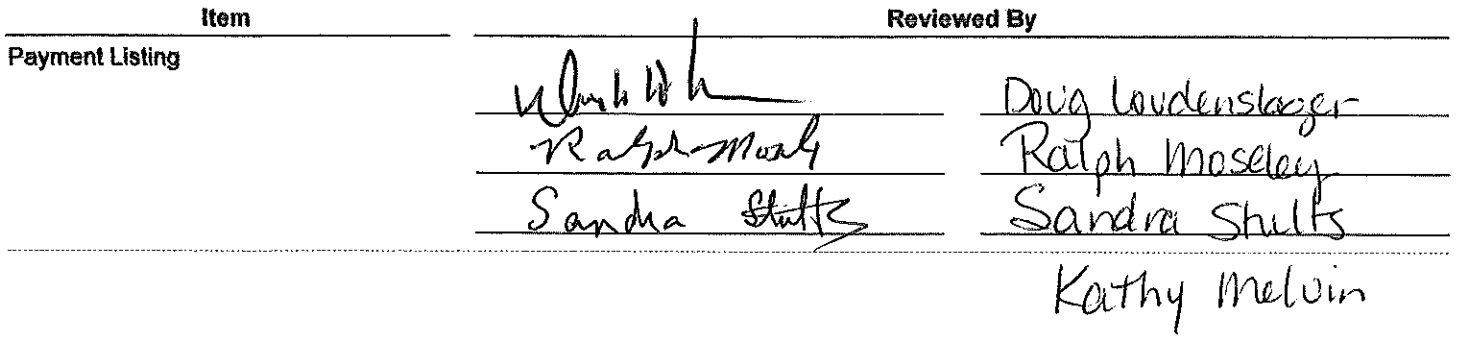 Item Reviewed By
Payment Listing
Doug Loudenslager
Ralph Mosely Ralph Moseley
Sandra Stults Sandra Stults
Kathy Melvin